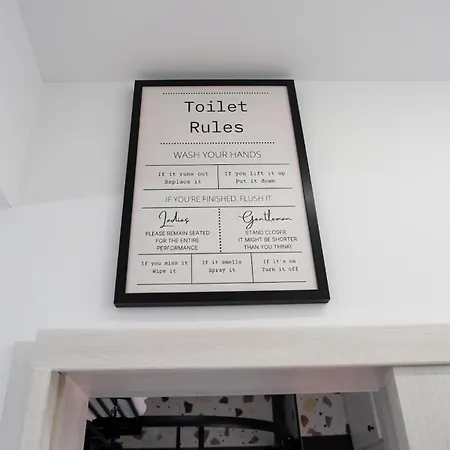 Toilet
Rules
WASH YOUR HANDS
If it runs out
Replace it
If you lift it up
Put it down
IF YOU'RE FINISHED, FLUSH IT
Ladies
PLEASE REMAIN SEATED
FOR THE ENTIRE
PERFORMANCE
Gentlemen
STAND CLOSER,
IT MIGHT BE SHORTER
THAN YOU THINK!
If you miss it
Wipe it
If it smells
Spray it
If it's on
Turn it off